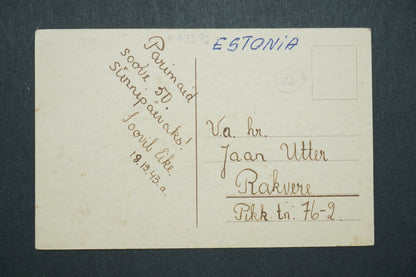 ESTONIA
Parimaid
soove 50.
Sünnipäevaks!
Soovib Eike
18.12.43.a.
Va. hr.
Jaan Utter
Rakvere
Pikk tn. 76-2.